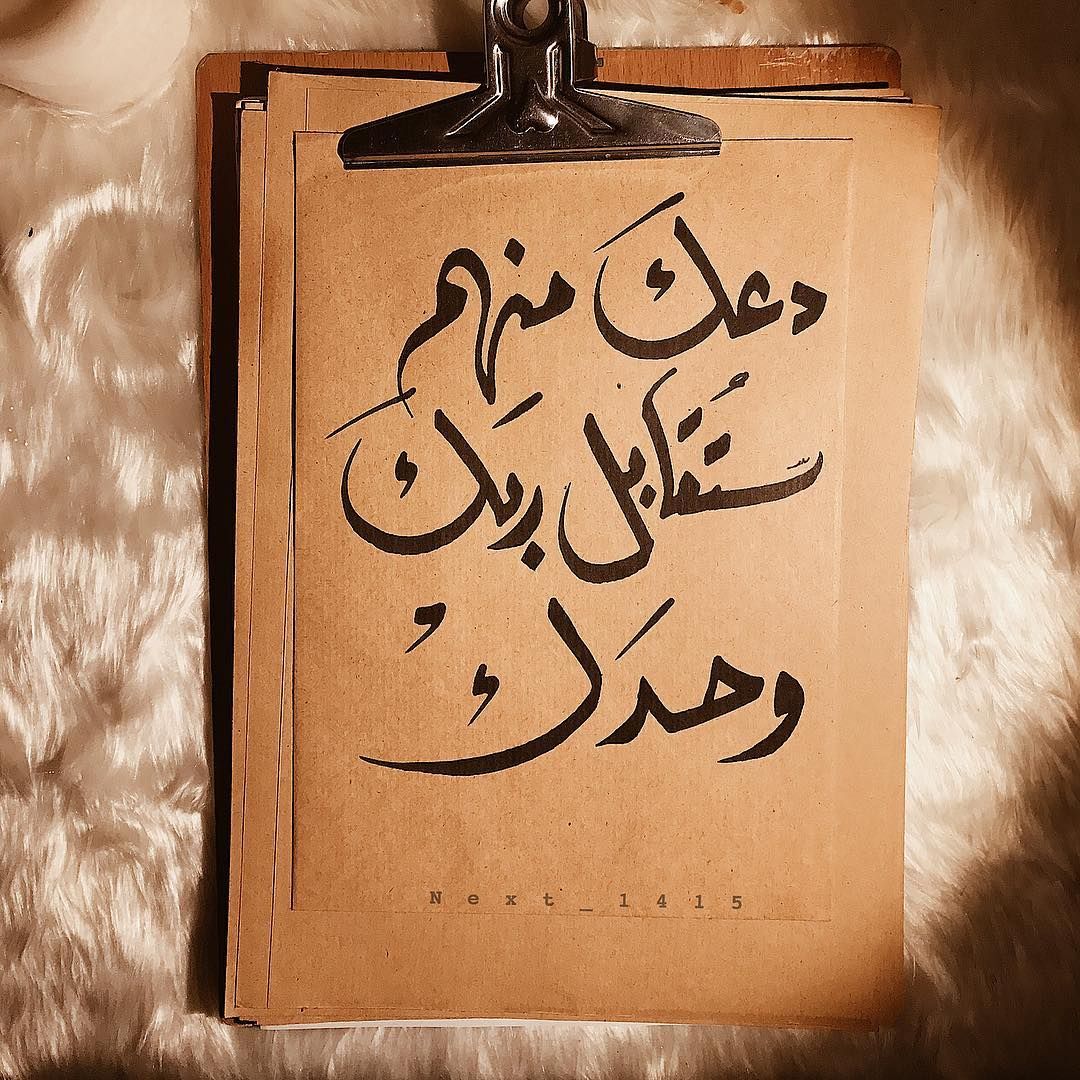 دعك منهم
ستُقابل ربك
وحدكْ
Next_1415